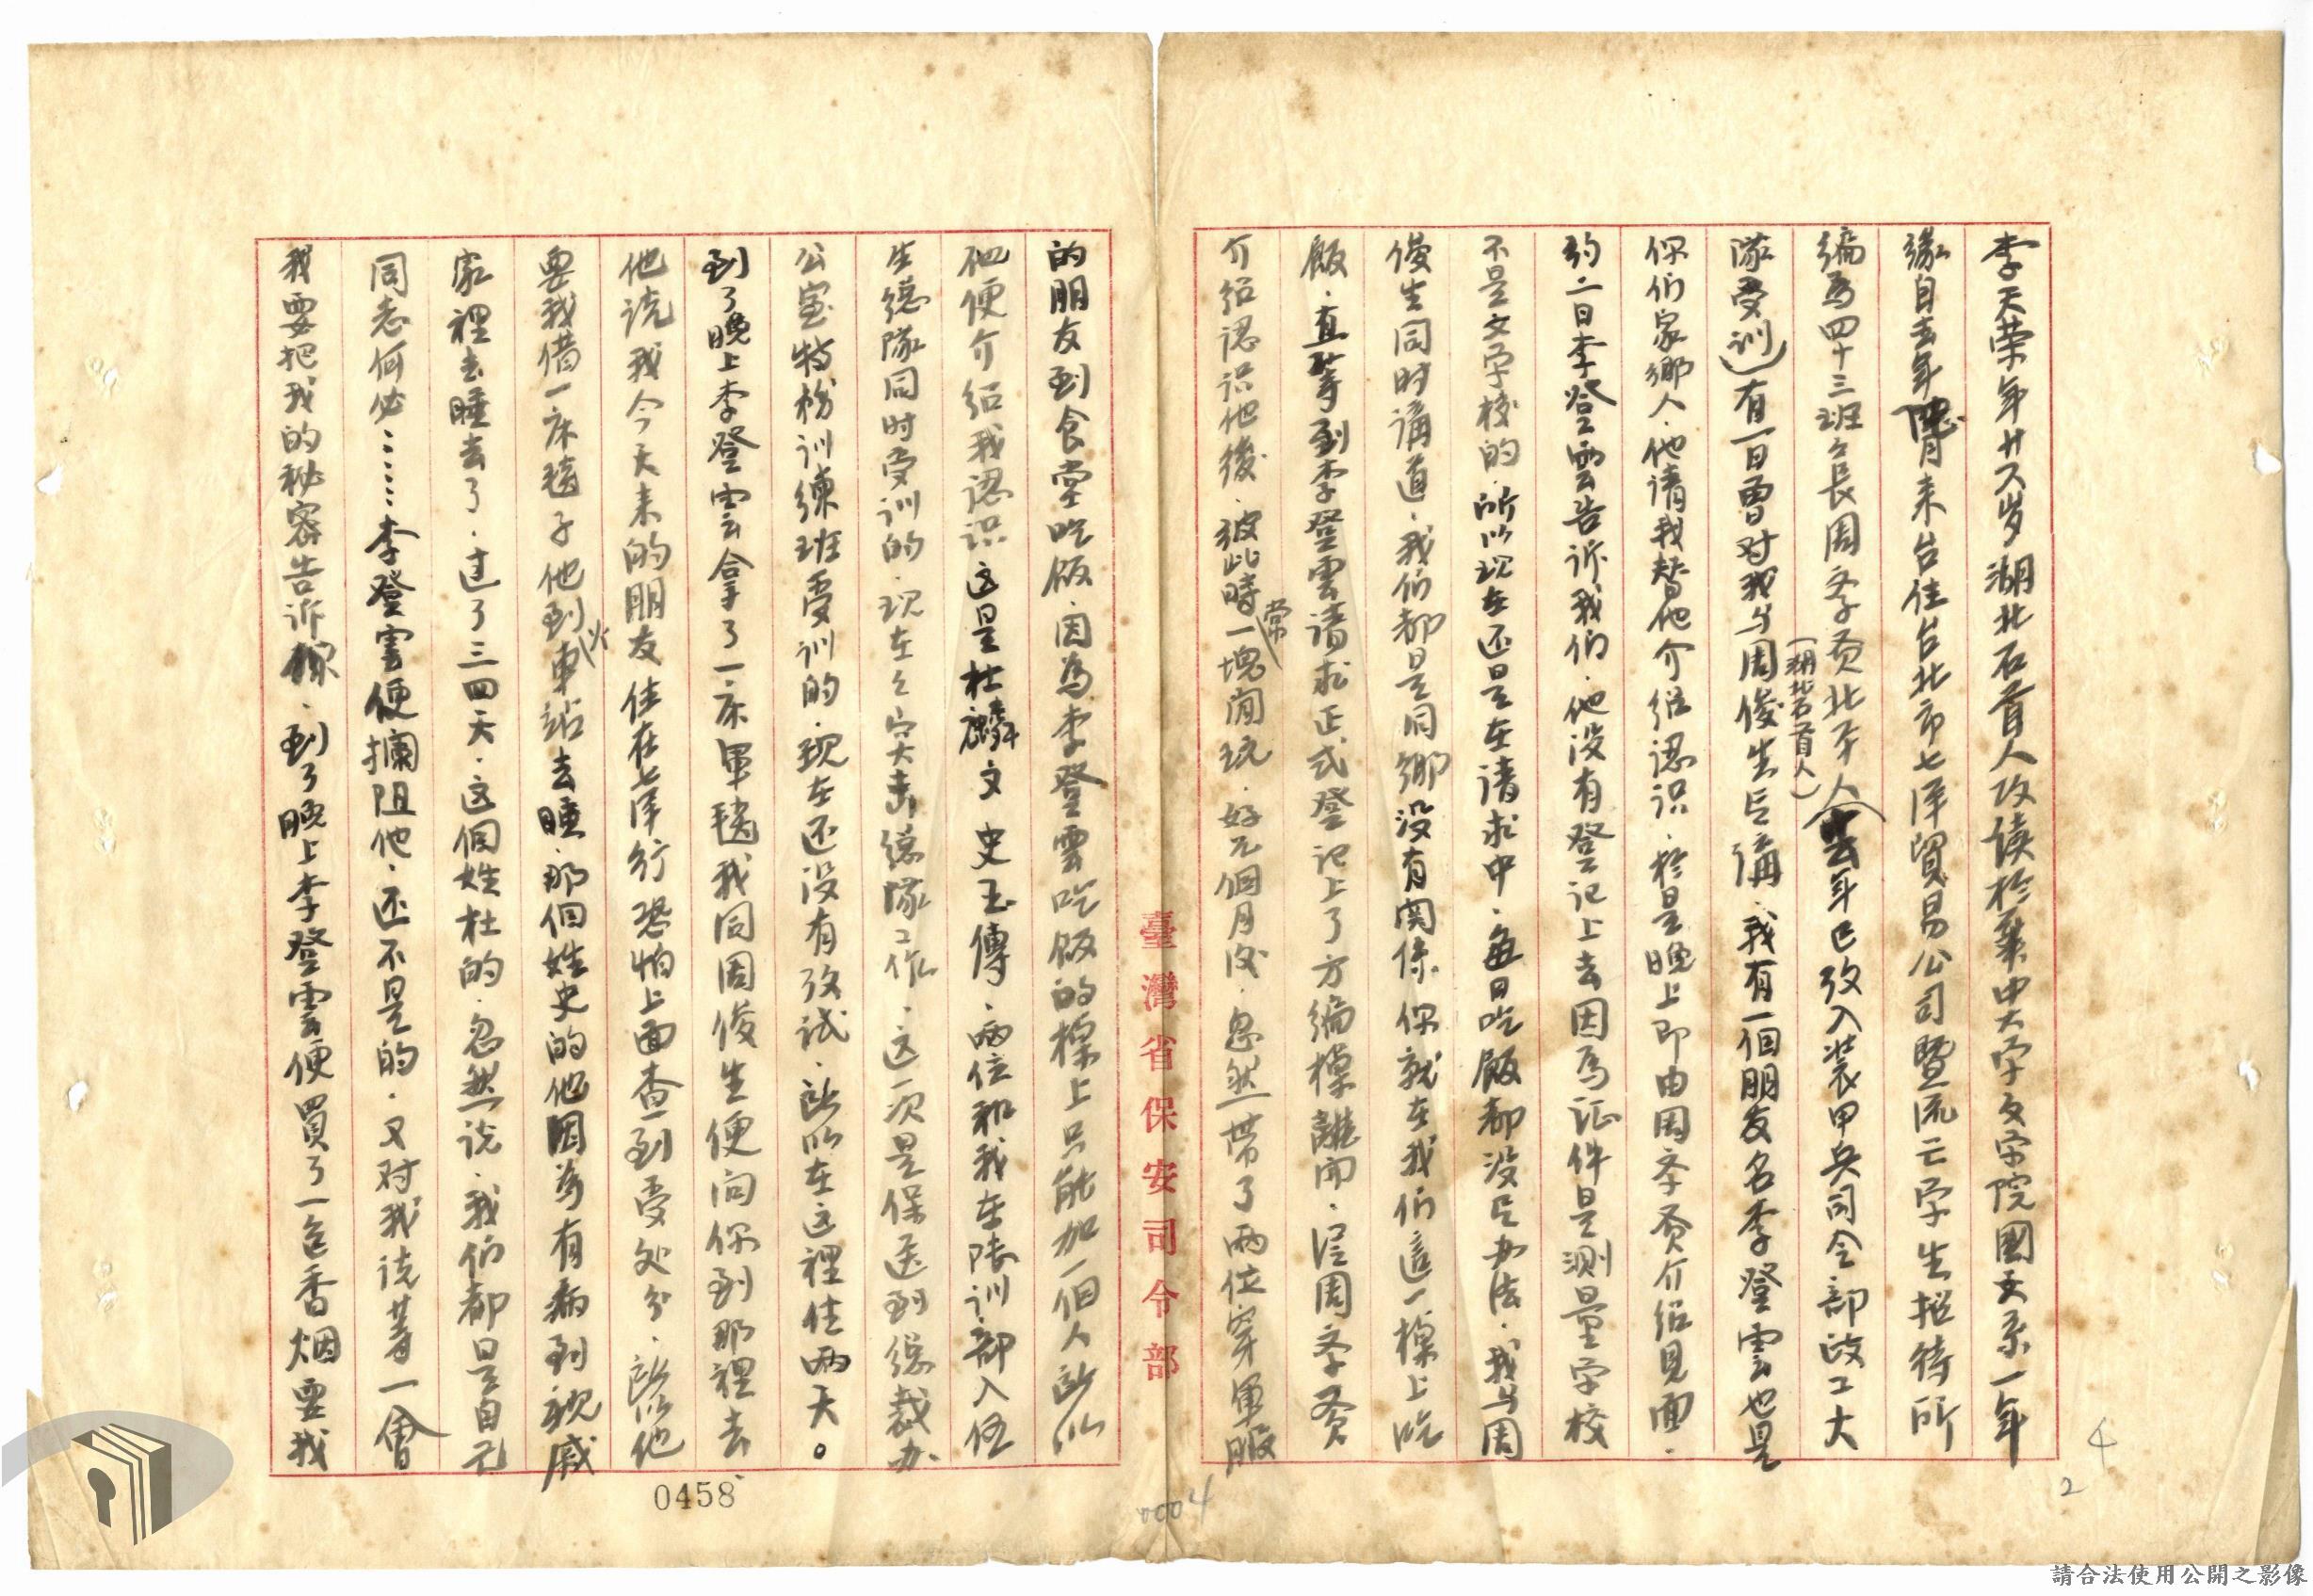 李天荣年廿六岁湖北石首人攻读於華中大学文学院國文系一年
緣自去年隨月来台住台北市七洋貿易公司暨流亡学生招待所
編為四十三班々長周孝贲北平人去年已攷入装甲兵司令部政工大
(湖北石首人)
隊受训)有一日曾对我与周俊生兵講.我有一個朋友名李登雲也是
你们家鄉人.他请我替他介绍認识.於是晚上即由周孝贲介绍見面.
约二日李登雲告诉我们.他没有登记上去因為证件是测量学校
不是文学校的.所以现在还是在请求中.每日吃飯都没兵办法.我与周
俊生同时講道.我们都是同鄉没有関係你就在我们這一棹上吃
飯.直等到李登雲请求正式登记上了方編棹離開.後周孝贲
介绍認识他後.彼此時常一塊閒玩.好几個月後.忽然帶了兩位穿軍服
的朋友到食堂吃飯.因為李登雲吃飯的棹上只能加一個人所以
他便介绍我認识这是杜麟文史玉傳.兩位和我在陸训部入伍
生總隊同时受训的.现在在突击總隊工作.这一次是保送到總裁办
公室特務训練班受训的.现在还没有攷试.所以在这裡住兩天。
到了晚上李登雲拿了一床軍毯我同周俊生便问你到那裡去
他说我今天来的朋友住在七洋行恐怕上面查到受处分.所以他
要我借一床毯子他到火車站去睡.那個姓史的他因為有病到親戚
家裡去睡去了.过了三四天.这個姓杜的.忽然说.我们都是自己
同志何必……李登雲便攔阻他.还不是的.又对我说等一會
我要把我的秘密告诉你.到了晚上李登雲便買了一包香烟要我
臺灣省保安司令部
0458
0004
4
2
請合法使用公開之影像